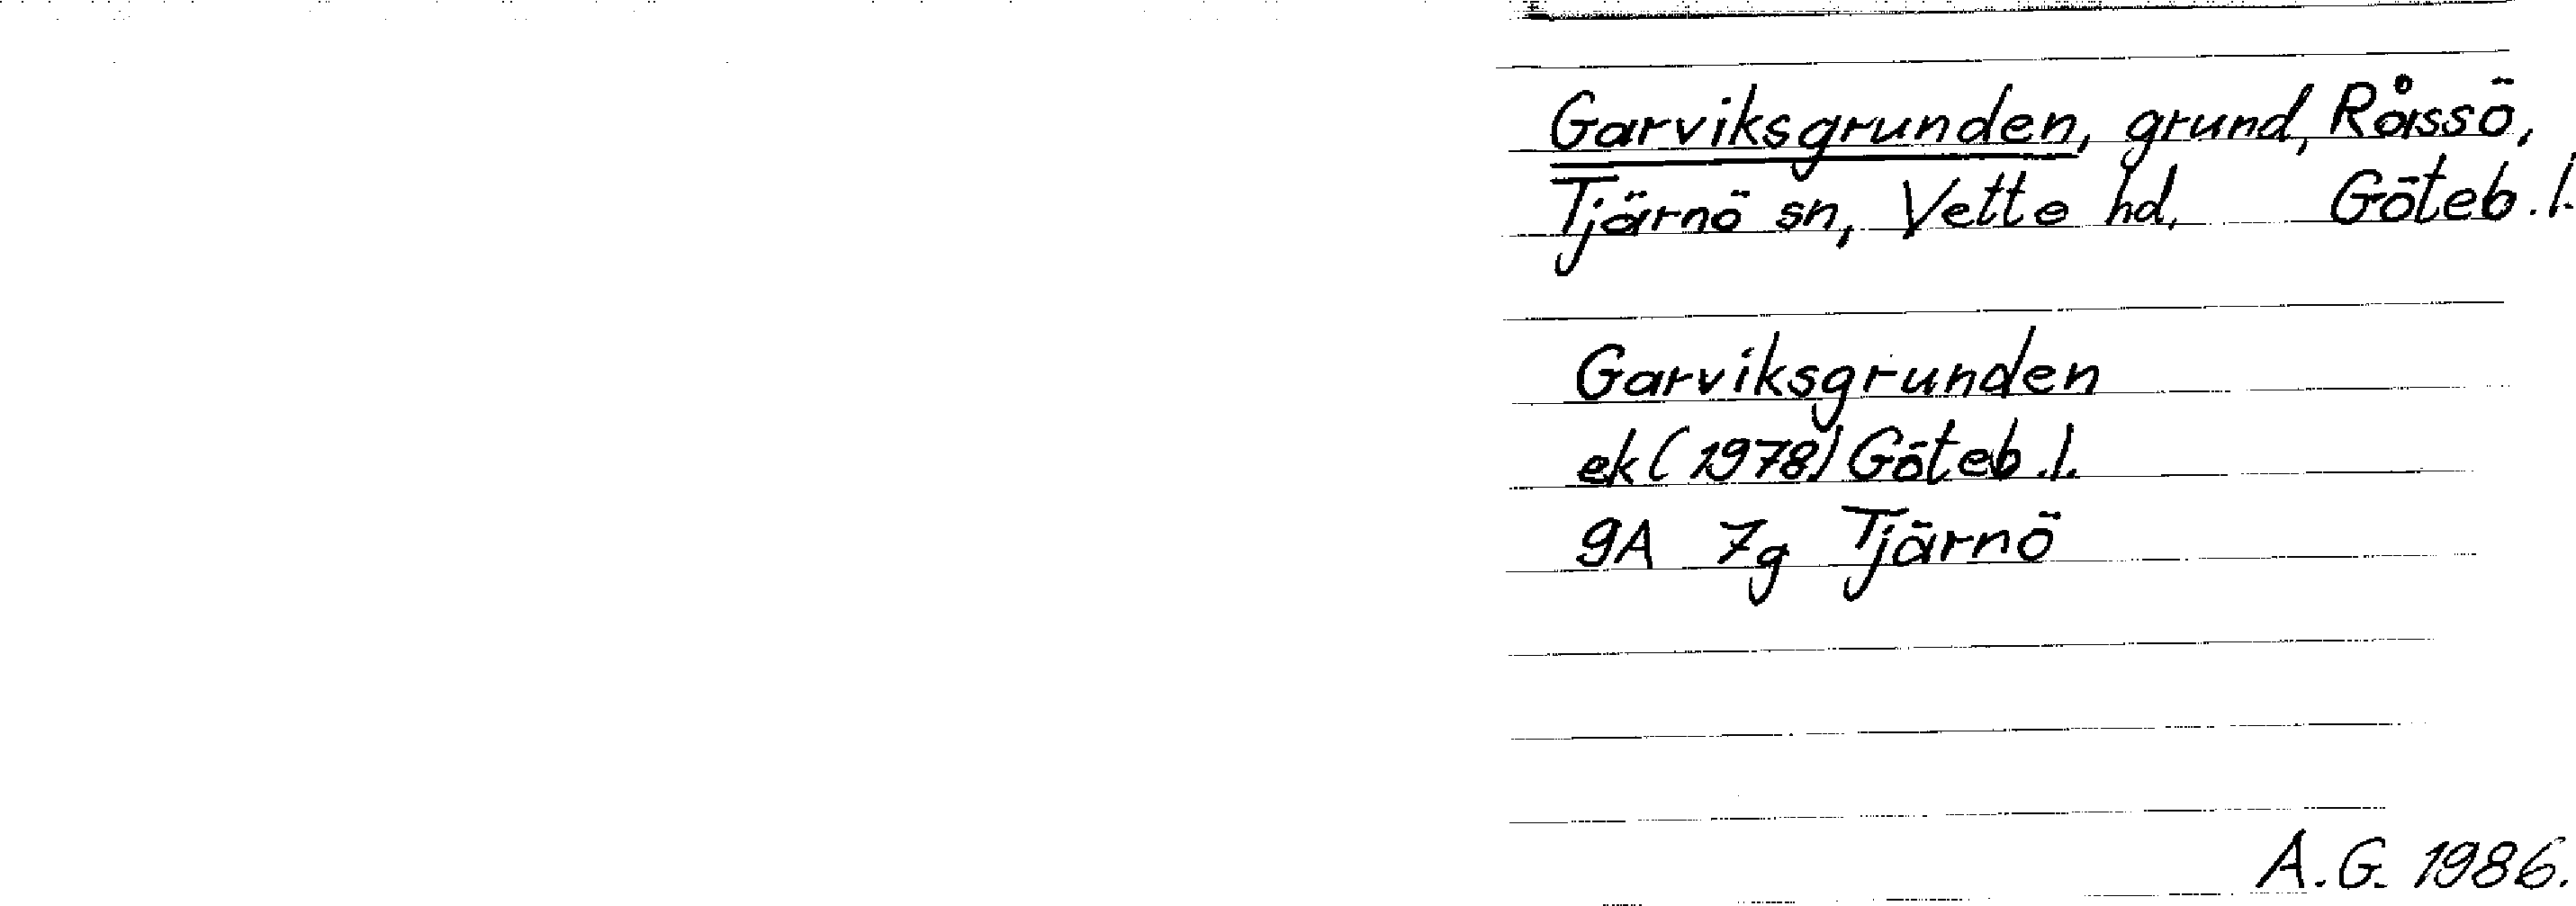 Garviksgrunden, grund, Råssö,
Tjärnö sn, Vette hd. Göteb.l.
Garviksgrunden
ek (1978) Göteb.l.
9A 7g Tjärnö
A.G. 1986.